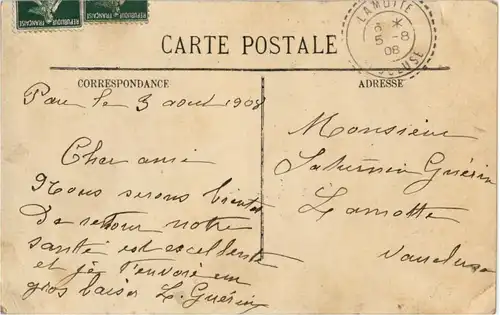 REPUBLIQUE FRANÇAISE
REPUBLIQUE FRANÇAISE
LAMOTTE
5 -8
08
VAUCLUSE
CARTE POSTALE
CORRESPONDANCE
ADRESSE
Pau le 3 aout 1908
Cher ami
Nous serons bientot
De retour notre
santé est excellente
et je t'envoie un
gros baiser L. Guérin
Monsieur
Saturnin Guérin
Lamotte
Vaucluse